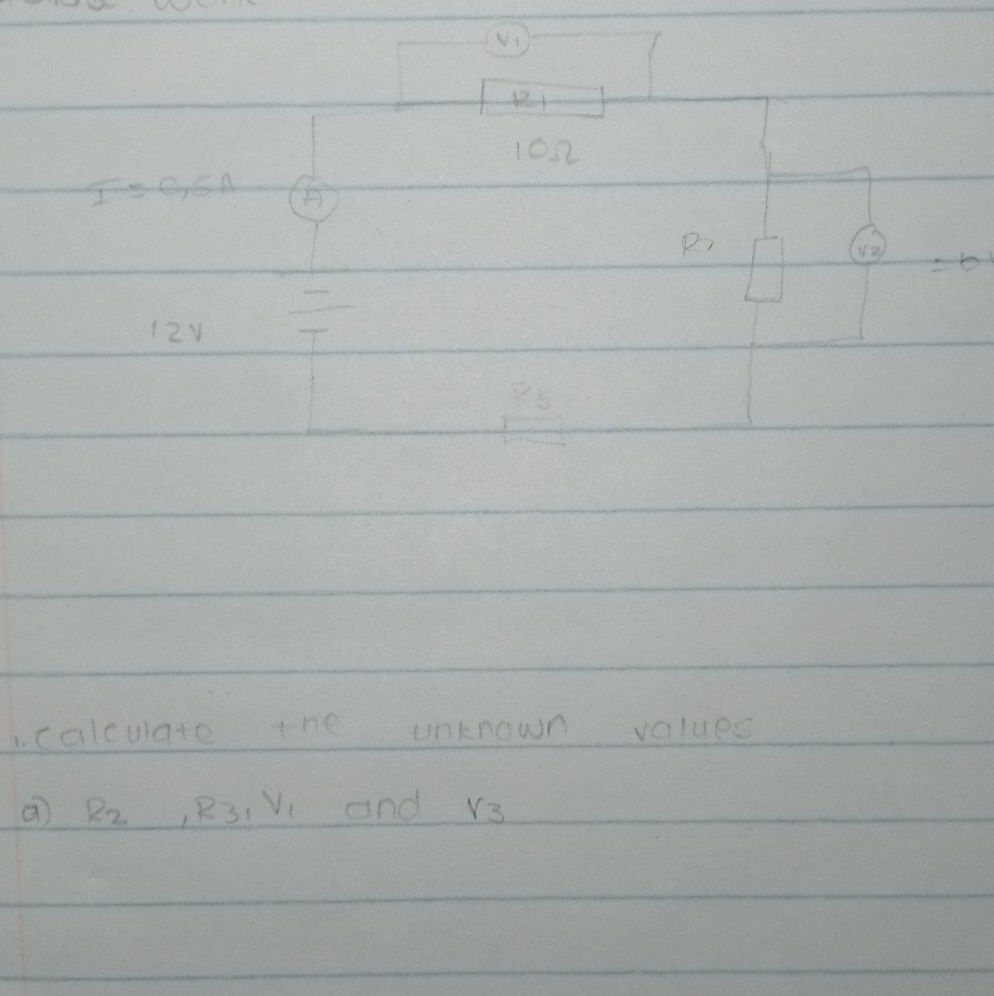 V1
R1
10Ω
I = 0,5A
A
R2
V2
12V
R3
1. calculate the unknown values
a) R2 , R3, V1 and V3